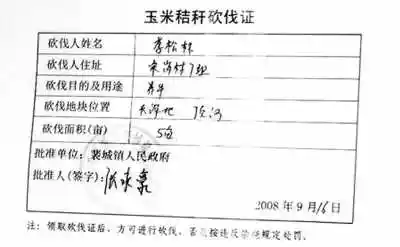 玉米秸秆砍伐证
砍伐人姓名 李松林
砍伐人住址 宋岗村7组
砍伐目的及用途 养牛
砍伐地块位置
砍伐面积(亩) 5亩
批准单位：裴城镇人民政府
批准人(签字)：
2008年9月16日
注：领取砍伐证后、方可进行砍伐，否则按违反禁烧规定处罚。